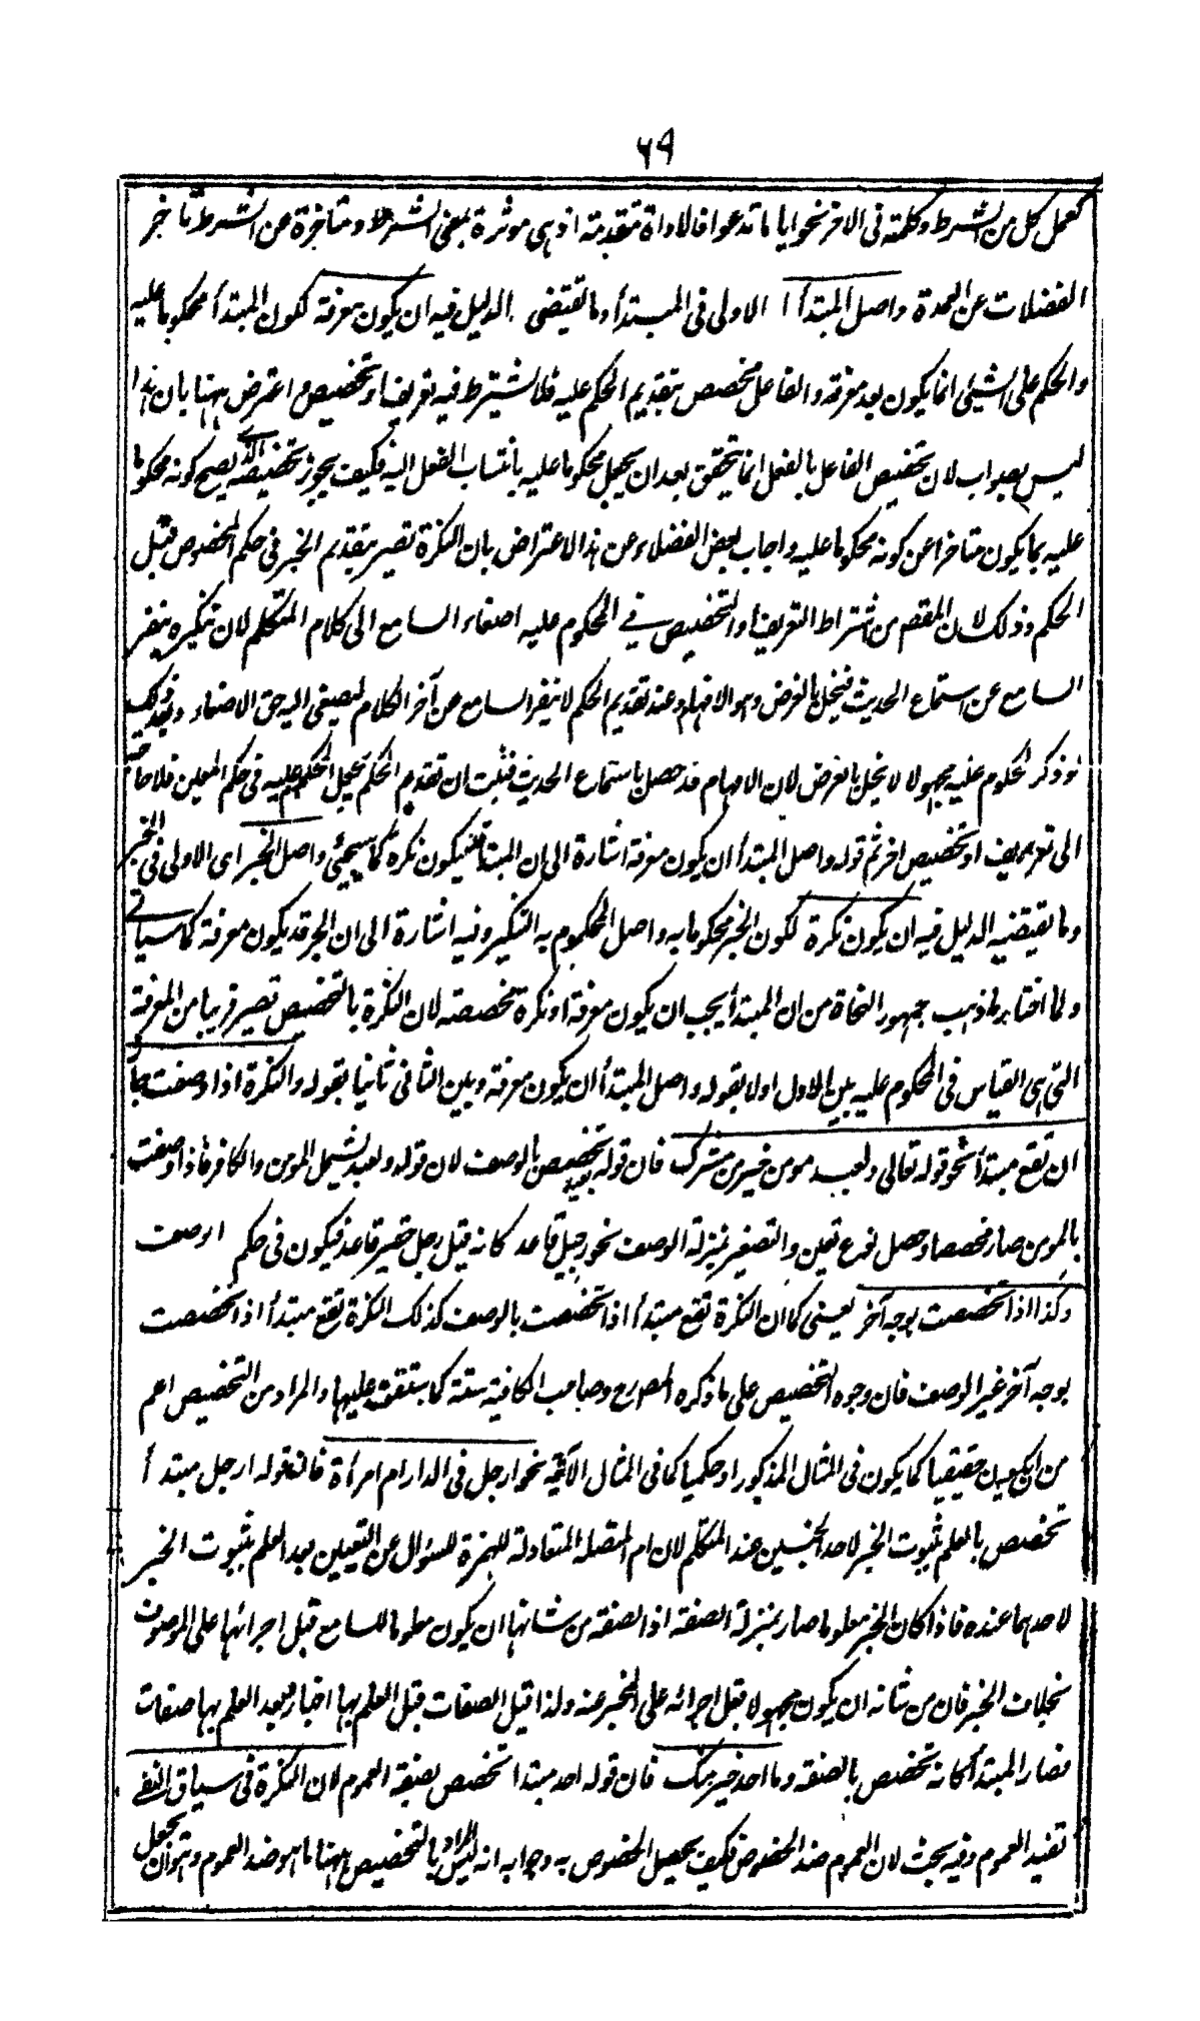 ۶۹
كعمل كل من الشرط وكلمته فى الاخر نحو ايا ما تدعوا فالاداة متقدمة اذ هى موثرة بمعنى الشرط ومتاخرة عن الشرط تاخر
الفضلات عن العمدة واصل المبتدأ ا الاولى فى المبتدأ وما تقتضى الدليل فيه ان يكون معرفة لكون المبتدأ محكوما عليه
والحكم على الشيئ انما يكون بعد معرفته والفاعل مخصص بتقديم الحكم عليه فلا يشترط فيه تعريف او تخصيص واعترض ههنا بان هذا
ليس بصواب لان تخصيص الفاعل بالفعل انما يتحقق بعد ان يجعل محكوما عليه بانتساب الفعل اليه فكيف يجوز تخصيصه الذى يصح كونه محكوما
عليه بما يكون متاخرا عن كونه محكوما عليه واجاب بعض الفضلاء عن هذا الاعتراض بان النكرة تصير بتقديم الخبر فى حكم المخصوص قبل
الحكم وذلك لان المقصد من اشتراط التعريف او التخصيص فى المحكوم عليه اصغاء السامع الى كلام المتكلم لان تنكيره ينفر
السامع عن استماع الحديث فيخل بالغرض وهو الافهام وعند تقديم الحكم لا ينفر السامع عن آخر الكلام ليصغى اليه حق الاصغاء وبعد ذلك
لو ذكر المحكوم عليه مجهولا لا يخل بالغرض لان الافهام قد حصل باستماع الحديث فثبت ان تقديم الحكم يجعل المحكوم عليه فى حكم المعين فلا حاجة
الى تعريف او تخصيص اخر ثم قوله واصل المبتدأ ان يكون معرفة اشارة الى ان المبتدأ قد يكون نكرة كما سيجيئ واصل الخبر اى الاولى فى الخبر
وما يقتضيه الدليل فيه ان يكون نكرة لكون الخبر محكوما به واصل المحكوم به التنكير وفيه اشارة الى ان الخبر قد يكون معرفة كما سياتى
ولما اختار مذهب جمهور النحاة من ان المبتدأ يجب ان يكون معرفة او نكرة مخصصة لان النكرة بالتخصيص تصير قريبا من المعرفة
التى هى القياس فى المحكوم عليه بين الاول اولا بقوله واصل المبتدأ ان يكون معرفة وبين الثانى ثانيا بقوله والنكرة اذا وصفت جاز
ان تقع مبتدأ نحو قوله تعالى ولعبد مومن خير من مشرك فان قوله عبد تخصيص بالوصف لان قوله ولعبد يشمل المومن والكافر فاذا وصفت
بالمومن صار مخصصا وحصل نوع تعين والتصغير بمنزلة الوصف نحو رجيل قاعد كانه قيل رجل حقير قاعد فيكون فى حكم الوصف
وكذا اذا تخصصت بوجه آخر يعنى كما ان النكرة تقع مبتدأ اذا تخصصت بالوصف كذلك النكرة تقع مبتدأ اذا تخصصت
بوجه آخر غير الوصف فان وجوه التخصيص على ما ذكره المص رح وصاحب الكافية ستة كما ستقف عليها والمراد من التخصيص اعم
من ان يكون حقيقيا كما يكون فى المثال المذكور او حكميا كما فى المثال الآتى نحو ارجل فى الدار ام امرأة فان قوله ارجل مبتدأ
تخصص بالعلم بثبوت الخبر لاحد الجنسين عند المتكلم لان ام المتصلة المتعادلة للهمزة للسؤال عن التعيين بعد العلم بثبوت الخبر
لاحدهما عنده فاذا كان الخبر معلوما صار بمنزلة الصفة اذ الصفة من شانها ان يكون معلوما للسامع قبل اجرائها على الموصوف
بخلاف الخبر فان من شانه ان يكون مجهولا قبل اجرائه على المخبر عنه ولذا قيل الصفات قبل العلم بها اخبار وبعد العلم بها صفات
فصار المبتدأ كانه تخصص بالصفة وما احد خير منك فان قوله احد مبتدا تخصص بصفة العموم لان النكرة فى سياق النفى
تفيد العموم وفيه بحث لان العموم ضد الخصوص فكيف يحصل الخصوص به وجوابه انه ليس المراد بالتخصيص ههنا ما هو ضد العموم وهو ان يجعل